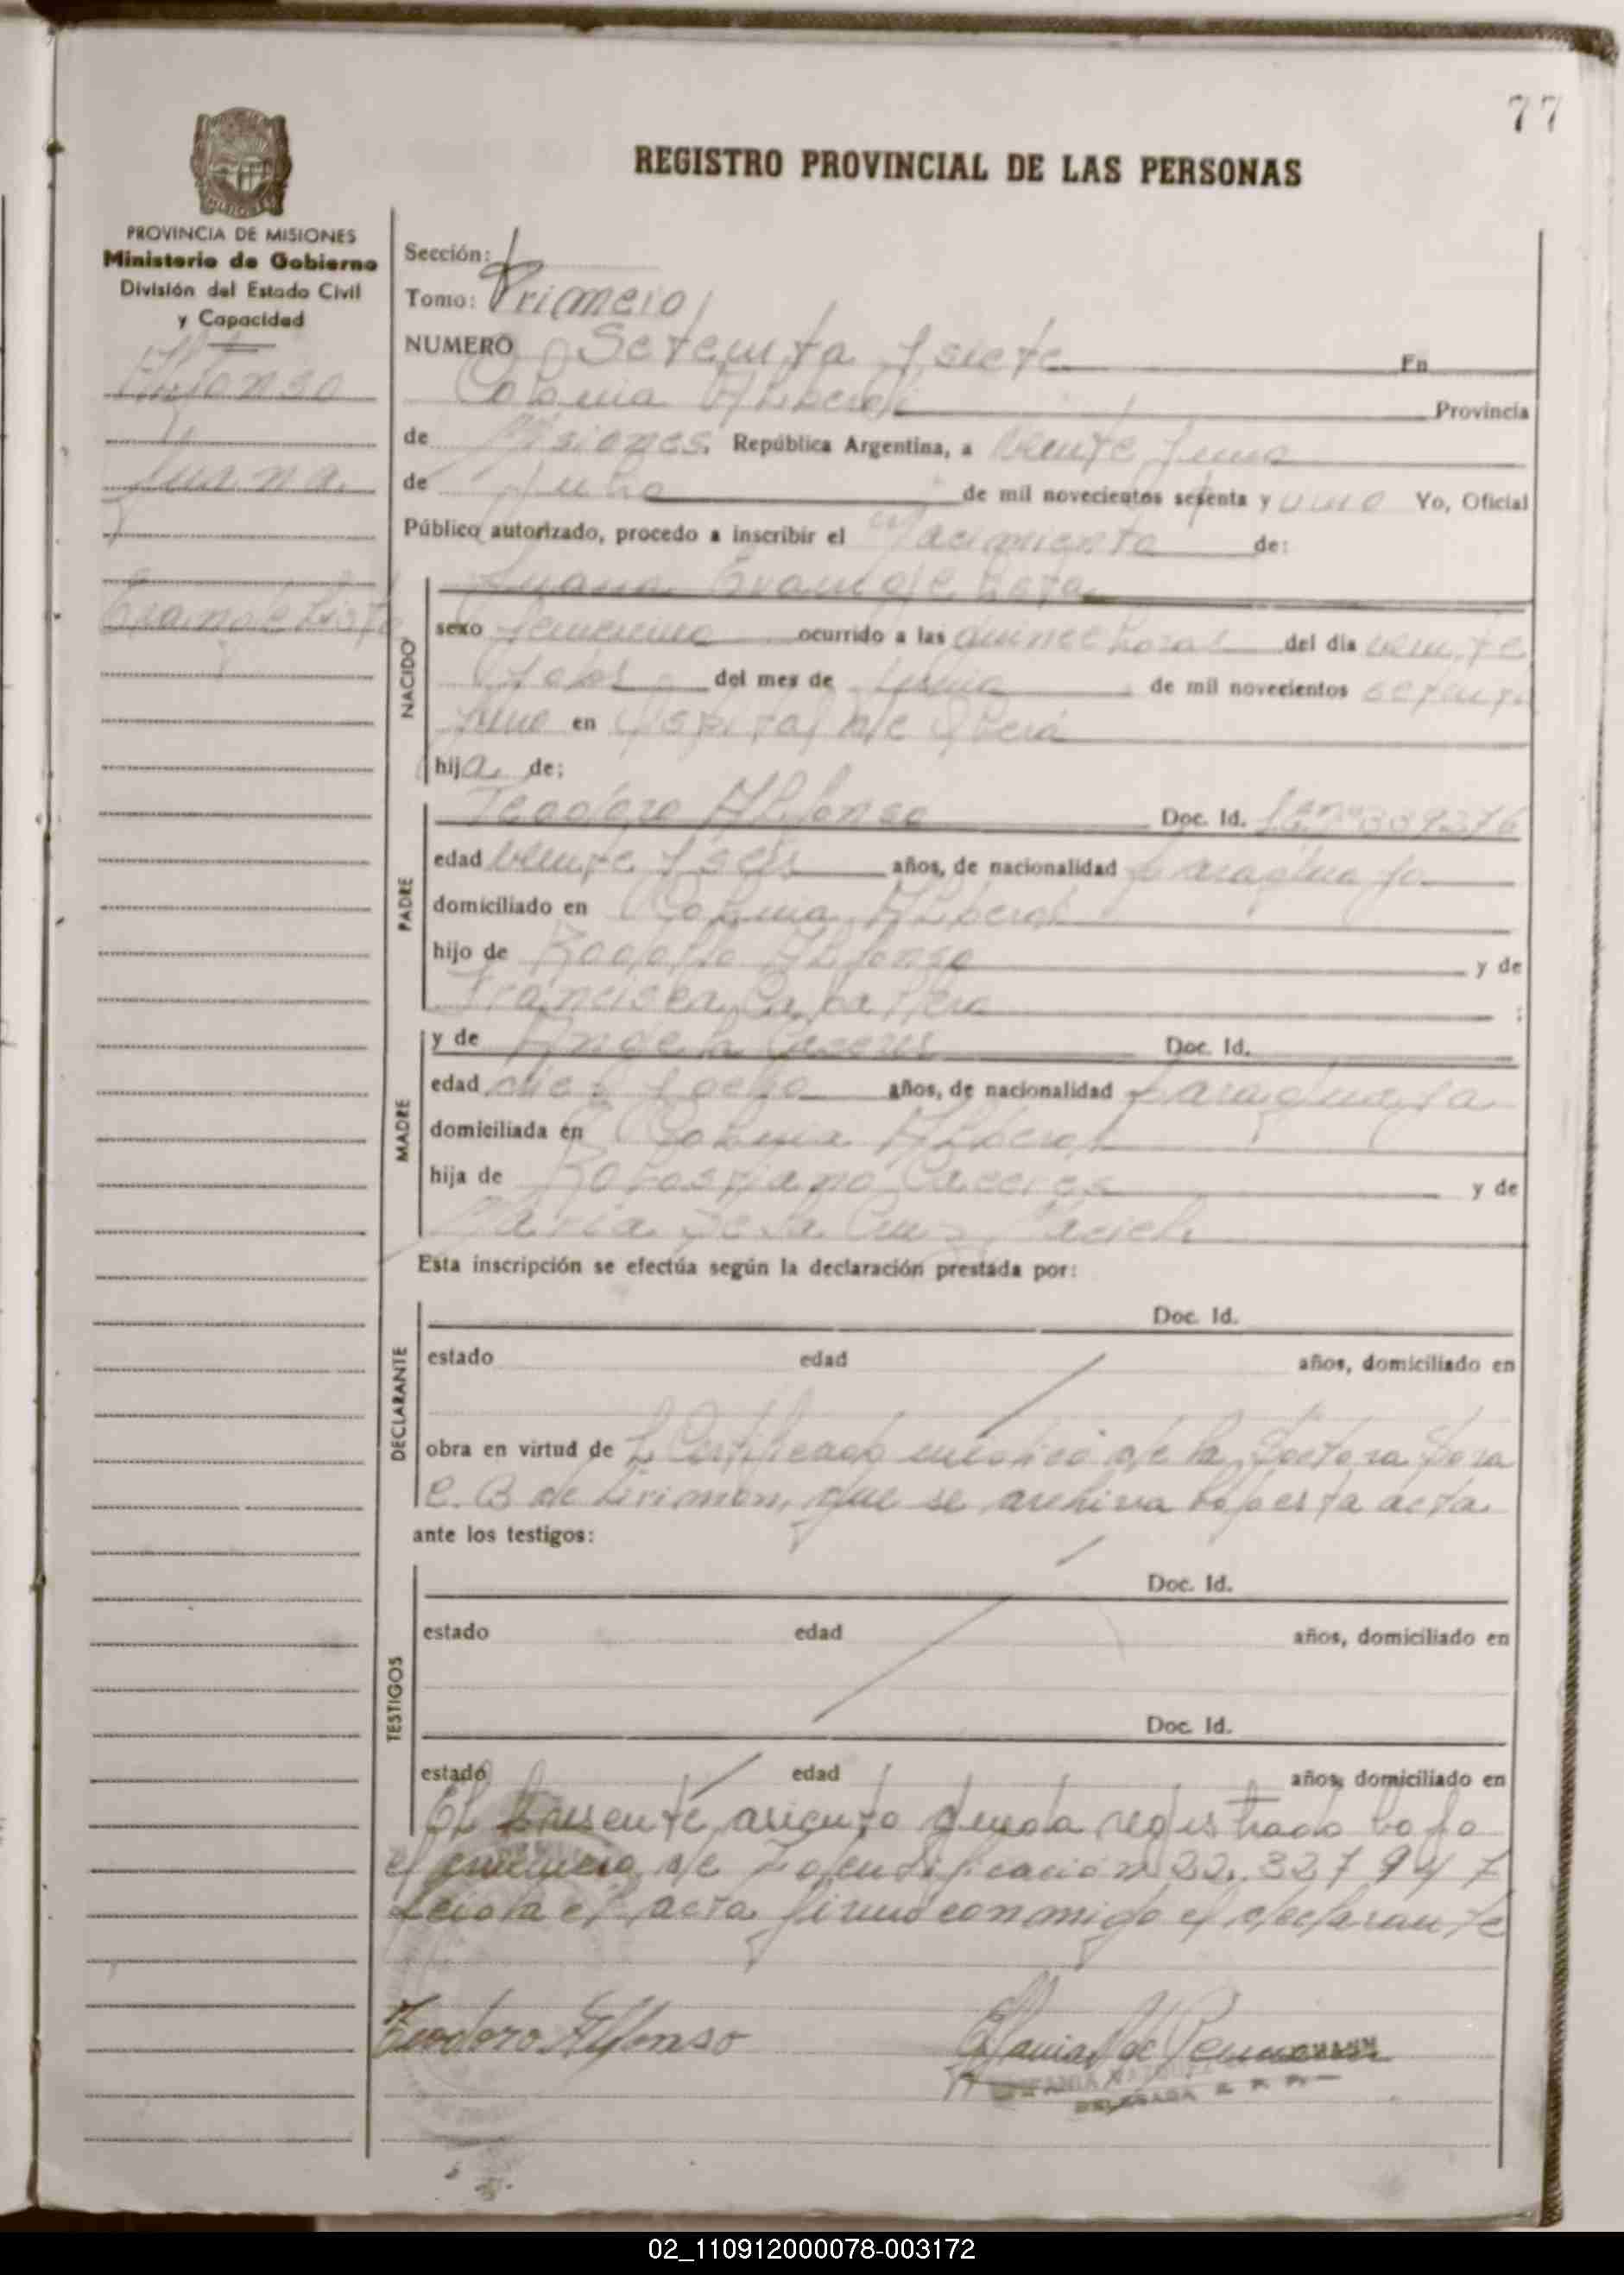 77
REGISTRO PROVINCIAL DE LAS PERSONAS
MISIONES
PROVINCIA DE MISIONES
Ministerio de Gobierno
División del Estado Civil
y Capacidad
Alfonso
Juana
Evangelista
Sección:
Tomo: Primero
NUMERO Setenta y siete En
Colonia Alberdi Provincia
de Misiones República Argentina, a veinte y uno
de Julio de mil novecientos setenta y uno Yo, Oficial
Público autorizado, procedo a inscribir el Nacimiento de:
Juana Evangelista
NACIDO
sexo femenino ocurrido a las quince horas del día veinte
y dos del mes de Junio de mil novecientos setenta
y uno en Hospital de Oberá
hija de;
PADRE
Teodoro Alfonso Doc. Id.
edad veinte y seis años, de nacionalidad Paraguayo
domiciliado en Colonia Alberdi
hijo de Rodolfo Alfonso y de
Francisca Caballero ;
MADRE
y de Angela Caceres Doc. Id.
edad diez y ocho años, de nacionalidad Paraguaya
domiciliada en Colonia Alberdi
hija de Caceres y de
Maria de la Cruz Maciel
Esta inscripción se efectúa según la declaración prestada por:
DECLARANTE
Doc. Id.
estado edad años, domiciliado en
obra en virtud de Certificado medico de la Doctora Dora
e. B de que se archiva bajo esta acta
ante los testigos:
TESTIGOS
Doc. Id.
estado edad años, domiciliado en
Doc. Id.
estado edad años, domiciliado en
El presente asiento queda registrado bajo
el numero de Identificación 22.327947
Leida el acta firmó conmigo el declarante
Teodoro Alfonso
DELEGADA R. P. P.
02_110912000078-003172